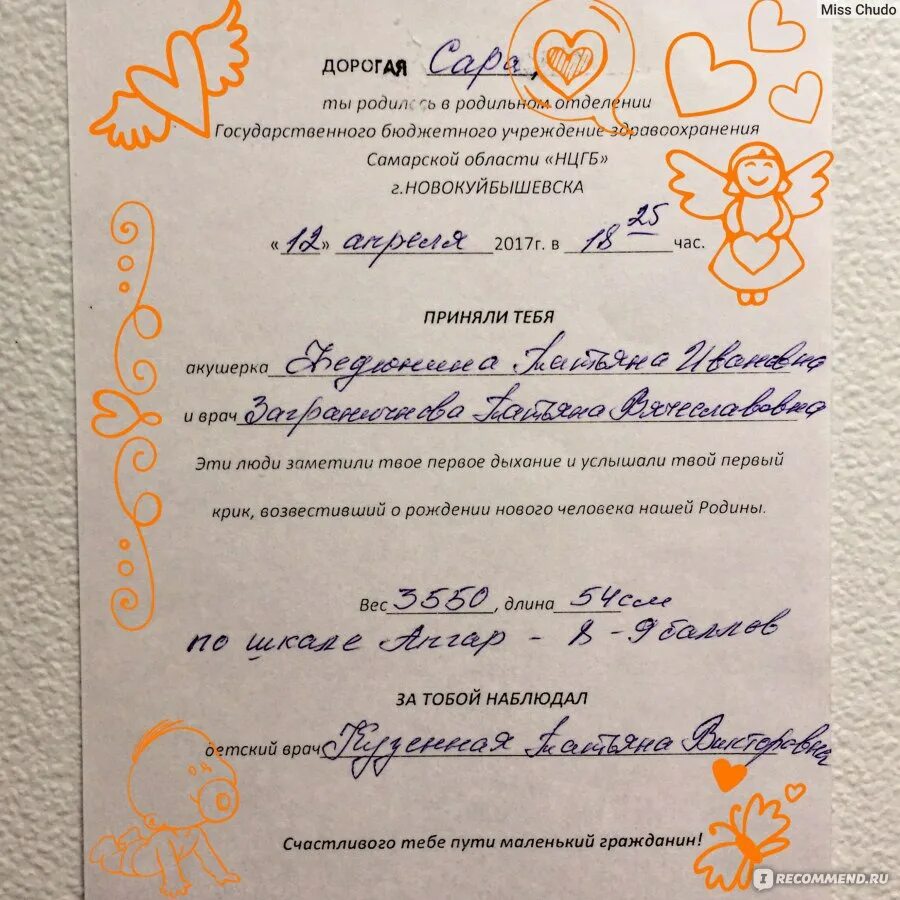 Miss Chudo
ДОРОГАЯ Сара,
ты родилась в родильном отделении
Государственного бюджетного учреждение здравоохранения
Самарской области «НЦГБ»
г.НОВОКУЙБЫШЕВСКА
«12» апреля 2017г. в 18 25 час.
ПРИНЯЛИ ТЕБЯ
акушерка Федюнина Татьяна Ивановна
и врач Заграничнова Татьяна Вячеславовна
Эти люди заметили твое первое дыхание и услышали твой первый
крик, возвестивший о рождении нового человека нашей Родины.
Вес 3550, длина 54см
по шкале Апгар - 8 - 9 баллов
ЗА ТОБОЙ НАБЛЮДАЛ
детский врач Татьяна Викторовна
Счастливого тебе пути маленький гражданин!
IRECOMMEND.RU